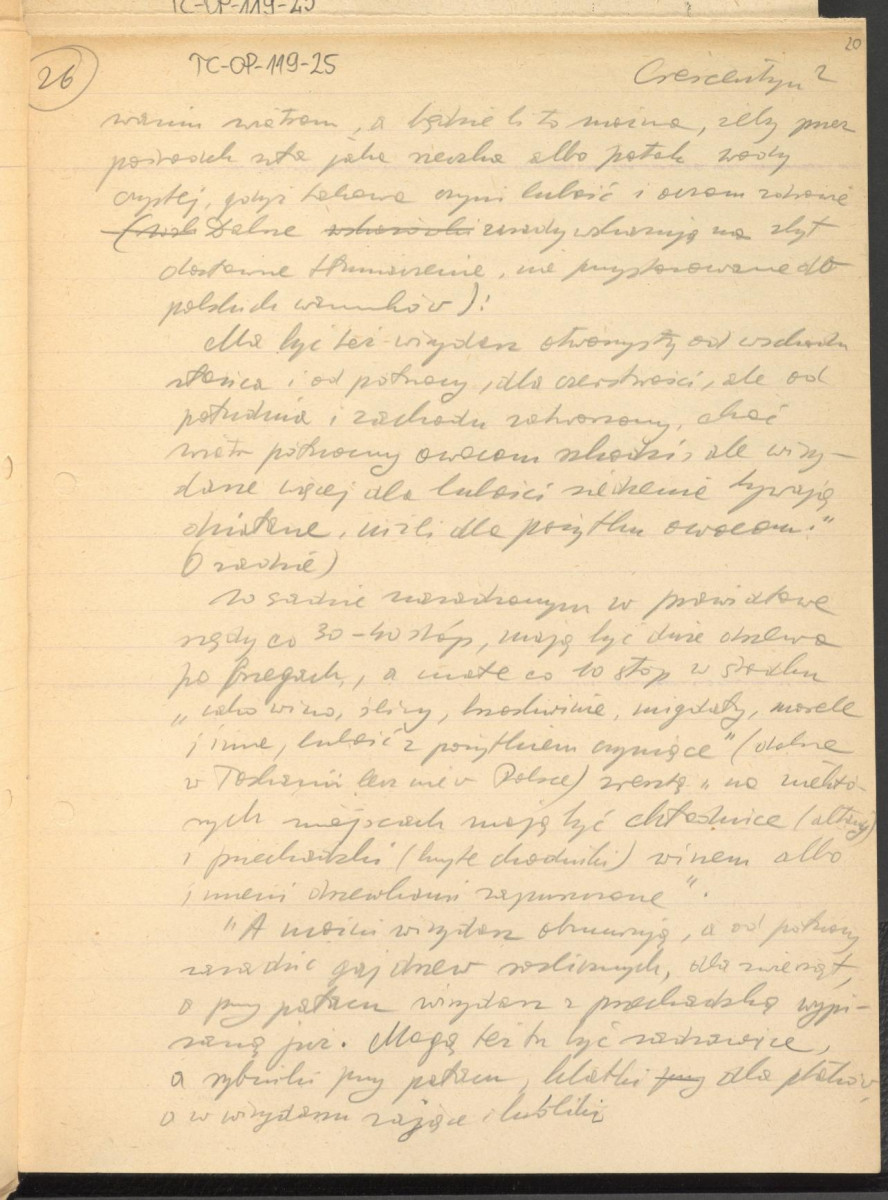 TC-OP-119-25
20
26
TC-OP-119-25
Crescentyn 2
wanim wiatrom, a będzie li to można, żeby przez
pośrodek szła jaka rzeczka albo potok wody
czystej, gdyż takowa czyni lubość i oczom zdrowie
Dalsze zasady wskazują na zbyt
dosłowne tłumaczenie, nie przystosowane do
polskich warunków)!
Ma być też wirydarz otworzysty od wschodu
słońca i od północy, dla czerstwości, ale od
południa i zachodu zatworzony, choć
wiatr północny owocom szkodzi, ale wiry-
darze więcej dla lubości bywają
działane, niźli dla pożytku owocom."
O sadzie)
W sadzie zasadzonym w prawidłowe
rzędy co 30-40 stóp, mają być duże drzewa
po brzegach, a małe co 10 stóp w środku
"jako wino, śliwy, brzoskwinie, migdały, morele
i inne, lubość z pożytkiem czyniące" (dobre
w Toskanii lecz nie w Polsce) zresztą "na niektó-
rych miejscach mają być chłodnice (altany)
i przechadzki (kryte chodniki) winem albo
inemi drzewkami zapuszczone".
"A możni wirydarz obmurują, a od północy
zasadzić gaj drzew rozlicznych, dla zwierząt,
a przy pałacu wirydarz z przechadzką wypi-
saną już. Mogą też tu być sadzawice,
a rybniki przy pałacu, klatki przy dla ptaków,
a w wirydarzu zające i króliki